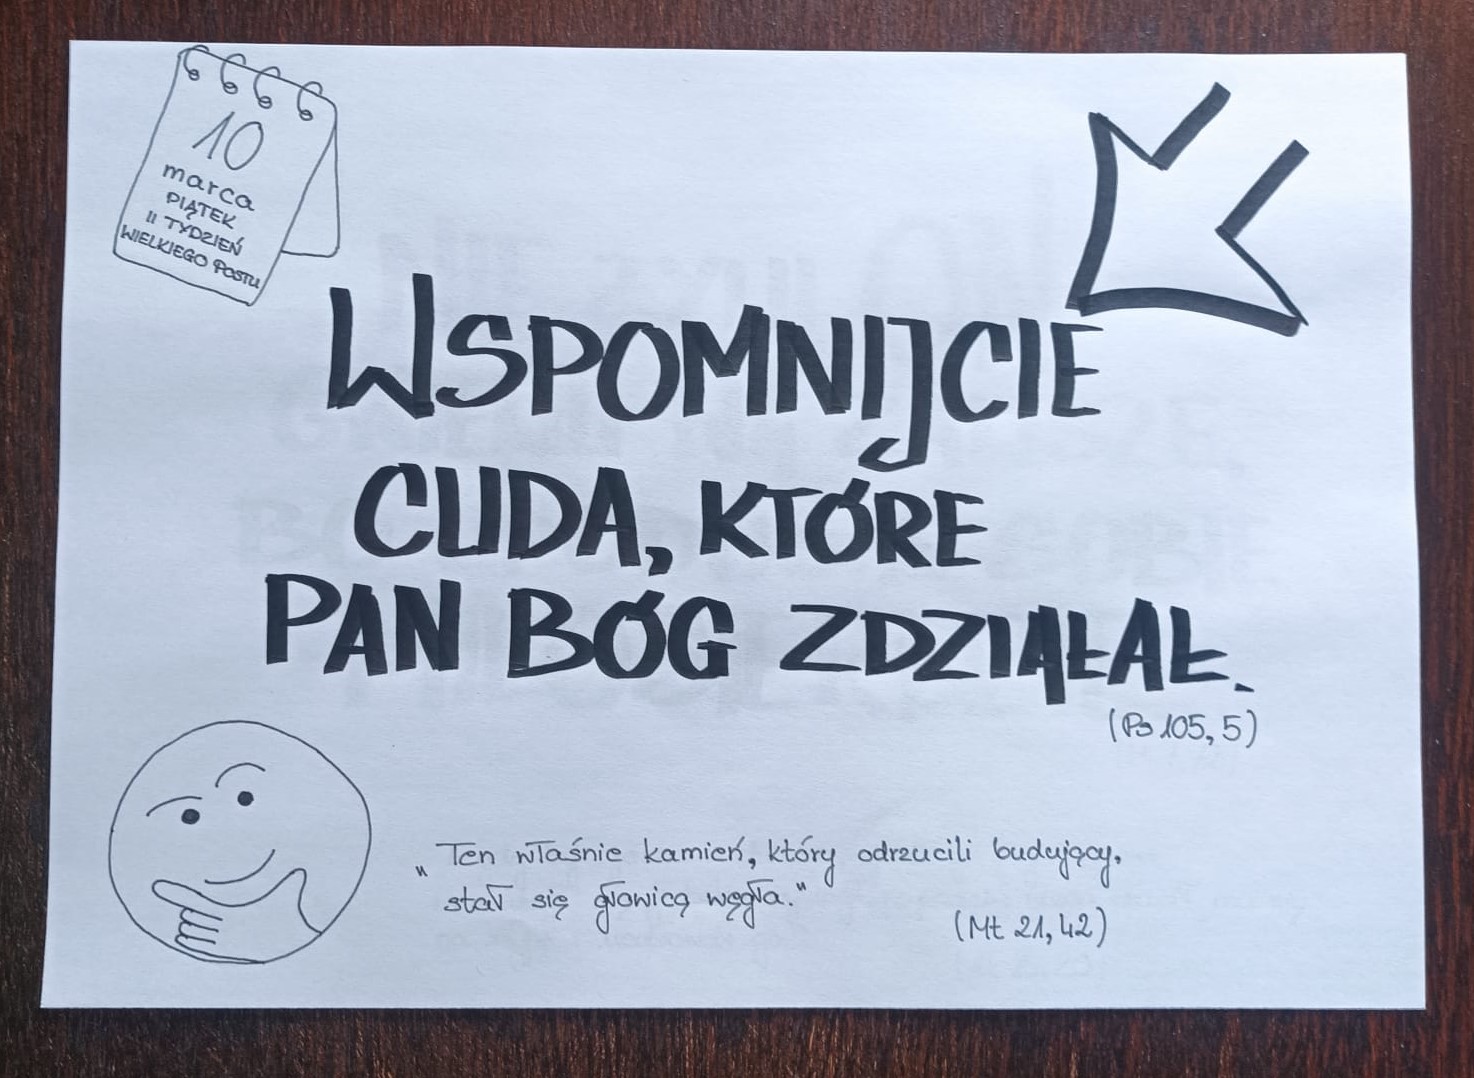 10
marca
PIĄTEK
II TYDZIEŃ
WIELKIEGO POSTU
WSPOMNIJCIE
CUDA, KTÓRE
PAN BÓG ZDZIAŁAŁ.
(Ps 105, 5)
„Ten właśnie kamień, który odrzucili budujący,
stał się głowicą węgła."
(Mt 21, 42)